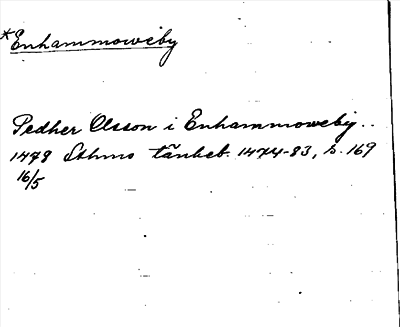 *Enhammoweby
Pedher Olsson i Enhammoweby..
1478 Sthms tänkeb. 1474-83, s. 169
16/5